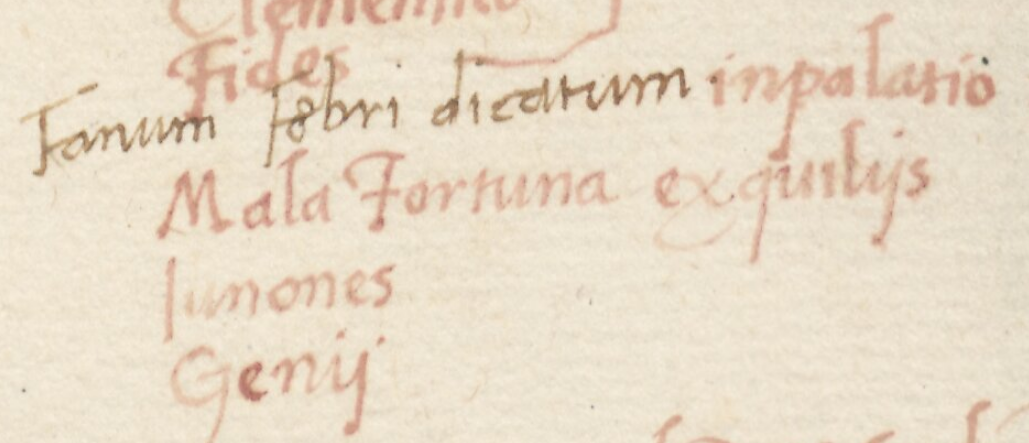 Fides
Fanum Febri dicatum. in palatio
Mala Fortuna exquilijs
Iunones
Genij